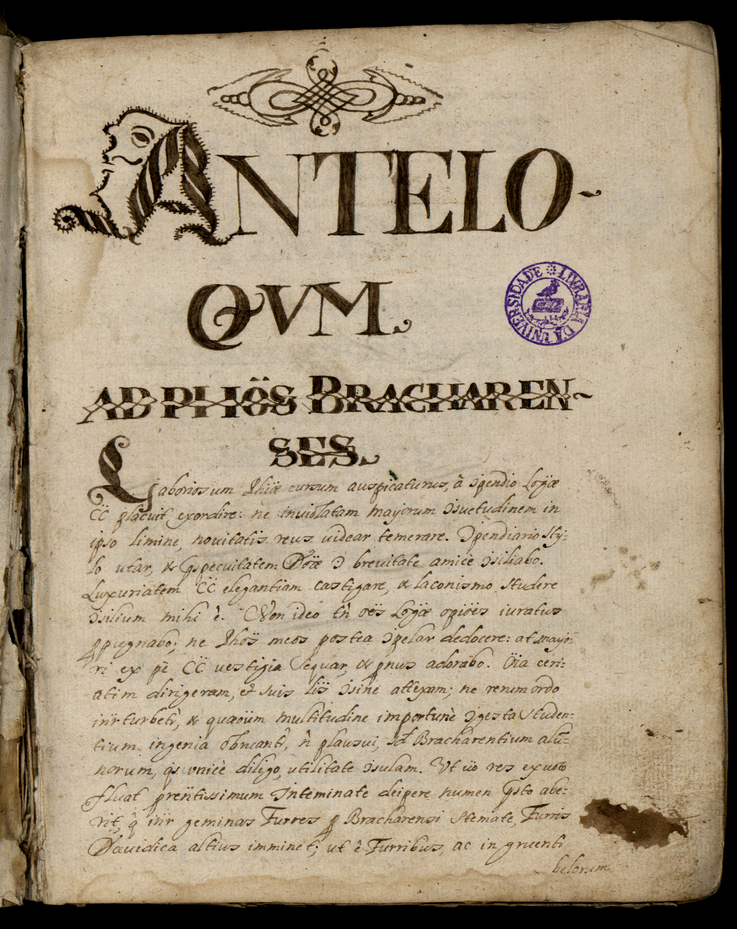 ANTELO-
QVM.
LIVRARIA DA UNIVERSIDADE
AD PHÖS BRACHAREN-
SES.
Laboriosum Phiæ cursum auspicaturus, à Ɔpendio Logæ
CC placuit exordire: ne inviolatam mayorum Ɔsuetudinem in
ipso limine, novitatis reus videar temerare. Ɔpendiario sty-
lo utar, & pspecuitatem Ɔ brevitate amicè Ɔsiliabo.
Luxuriatem CC elegantiam castigare, & laconismo studere
Ɔsilium mihi è. Non ideo tñ oës Logæ opiöes iuratus
ppugnabo; ne Phös meos postea Ɔpelar dedocere: at mayri
ri ex pe CC vestigia sequar, & pnus adorabo. Öia ceri-
atim dirigeram, et suis Ɔsinè attexam; ne rerum ordo
inirturbet, & quæoüm multitudine importunè Ɔgesta studen-
tium ingenia obrueant, n plausui, sd Bracharentium alü-
norum, qs unicè diligo, utilitate Ɔsulam. Vt üo res ex voto
fluat prentissimum Inteminatè deipere numen isto abe-
rit, q inir geminas Turres p Bracharensi stemate, Turris
Davidica altius imminet; ut è Turribus, ac in gruenti
belorum